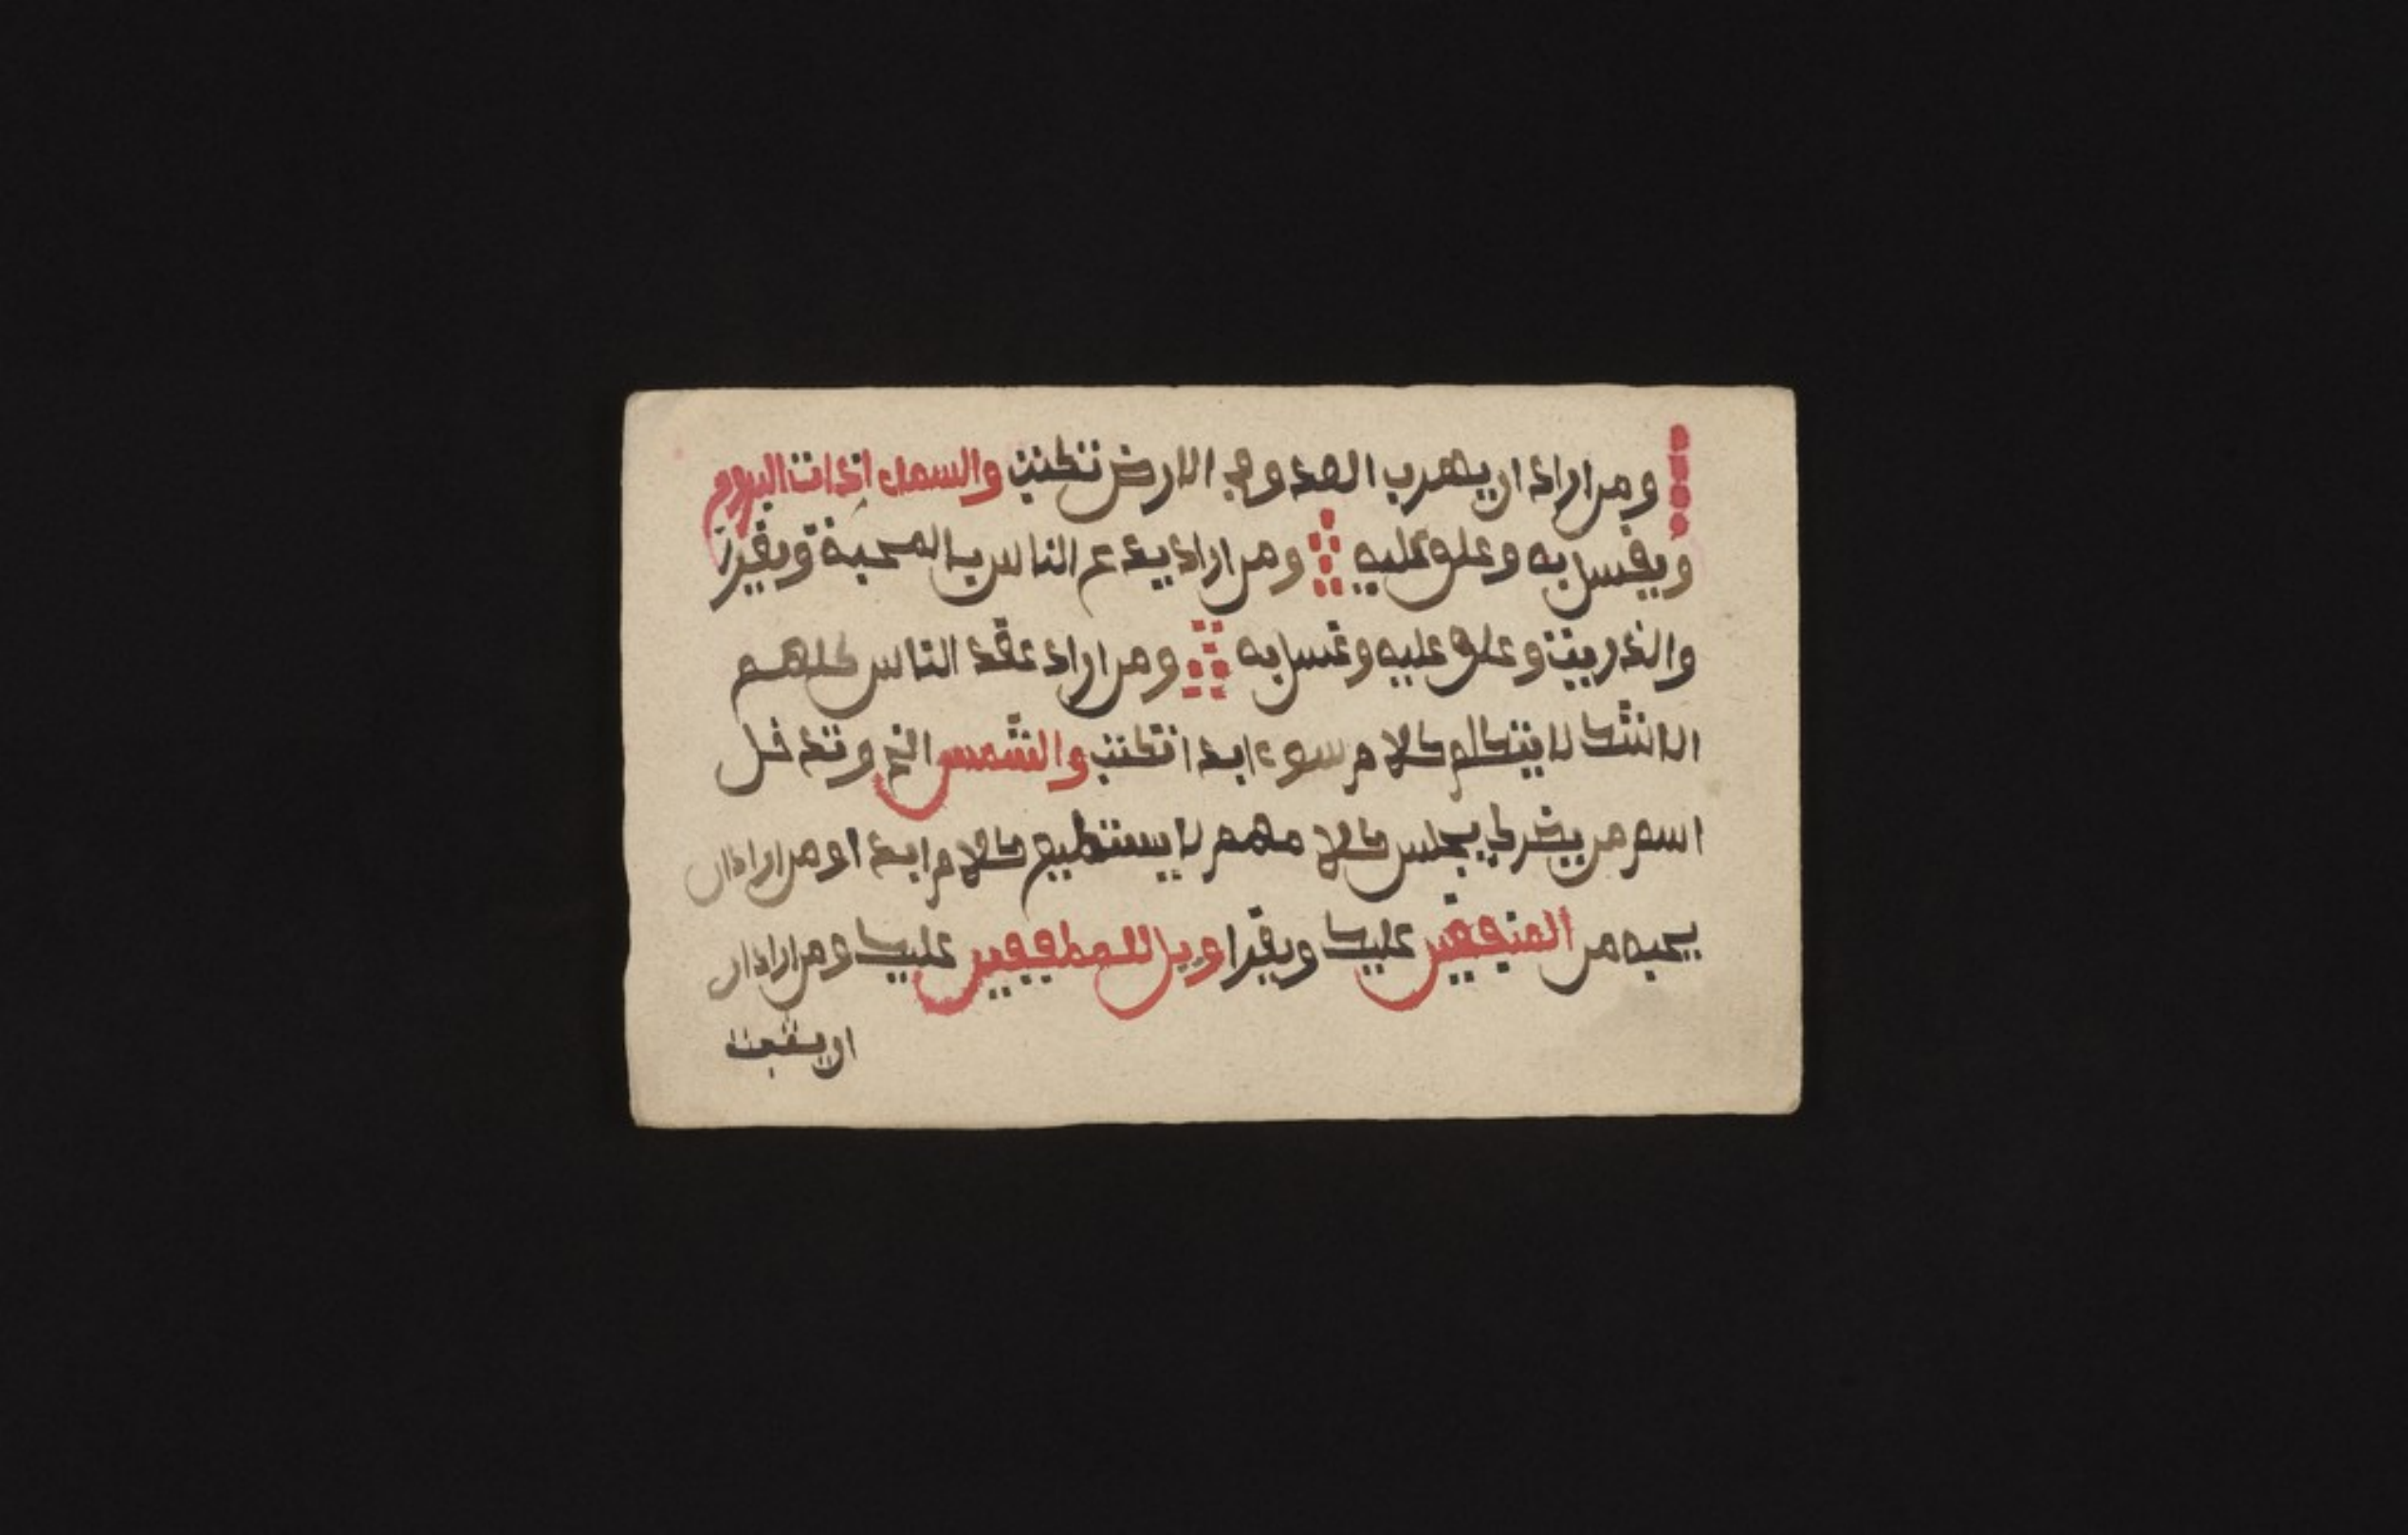 ومن اراد ان يهرب العدو في الارض تكتب والسماء اذات البروج
ويغسل به وعلق عليه ومن اراد يدع الناس بالمحبة ويقرا
والذريت وعلق عليه وغسل به ومن اراد عقد الناس كلهم
لا يتكلم كلام سوء ابدا تكتب والشمس الخ وتدخل
اسم من كلا لا يستطيع كلام ابدا ومن اراد ان
يحبه من عليك ويقرا ويل للمطففين عليك ومن اراد ان
ان